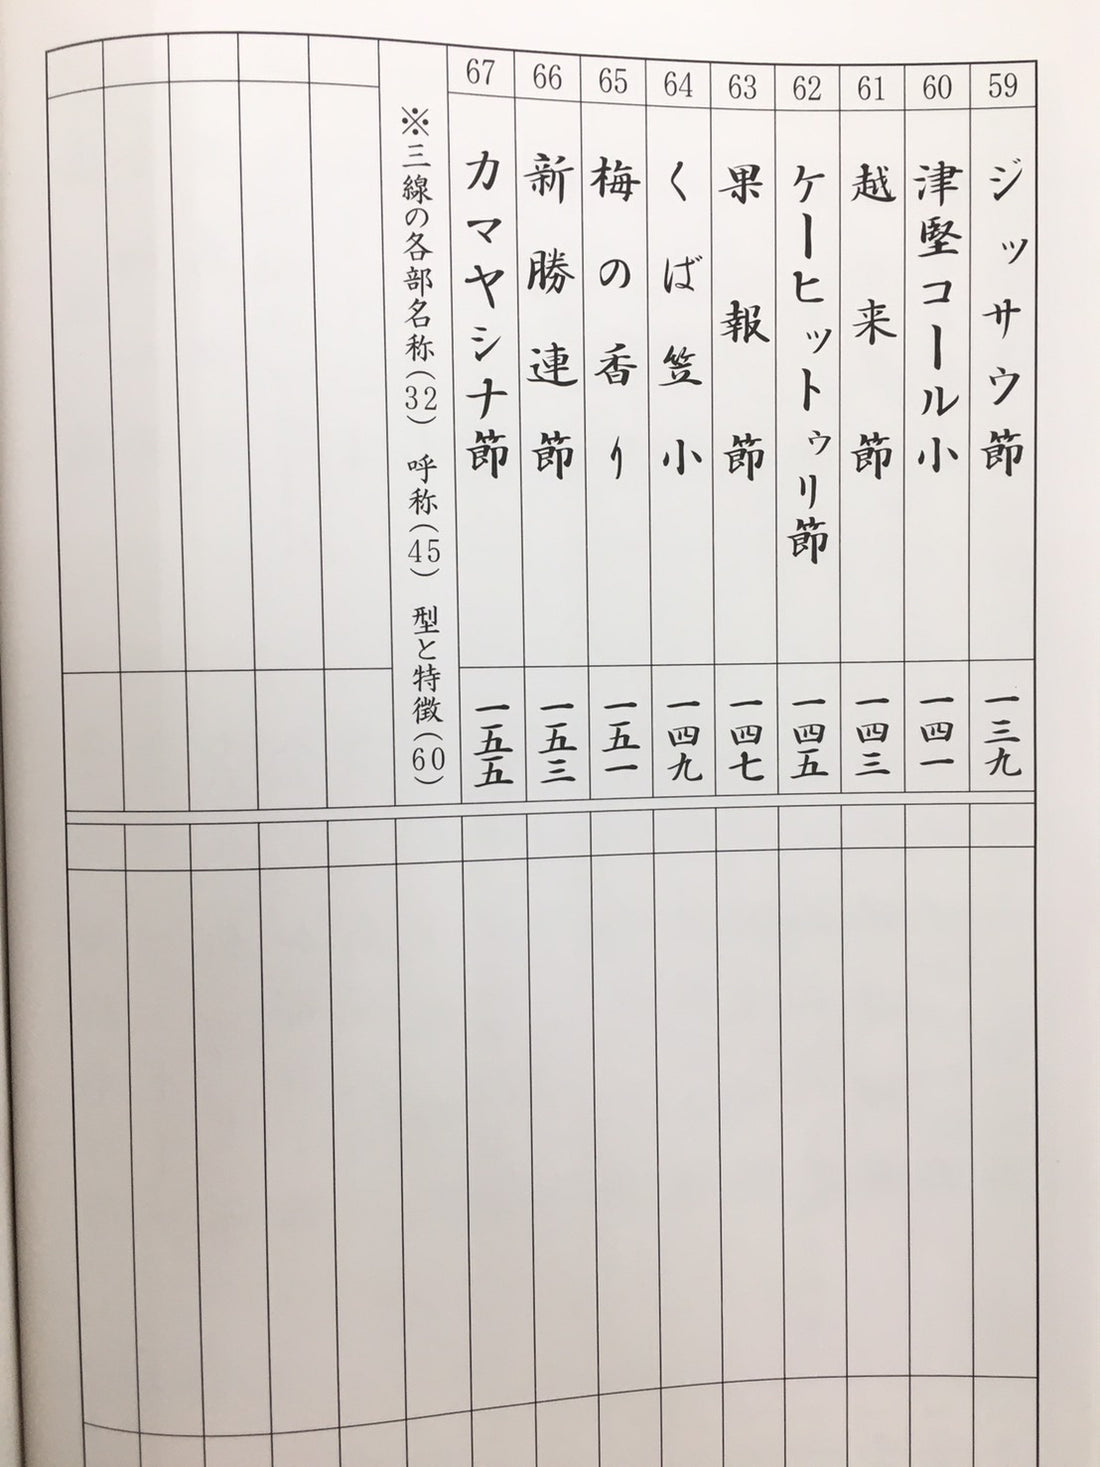 59 ジッサウ節 一三九
60 津堅コール小 一四一
61 越来節 一四三
62 ケーヒットゥリ節 一四五
63 果報節 一四七
64 くば笠小 一四九
65 梅の香り 一五一
66 新勝連節 一五三
67 カマヤシナ節 一五五
※三線の各部名称(32) 呼称(45) 型と特徴(60)